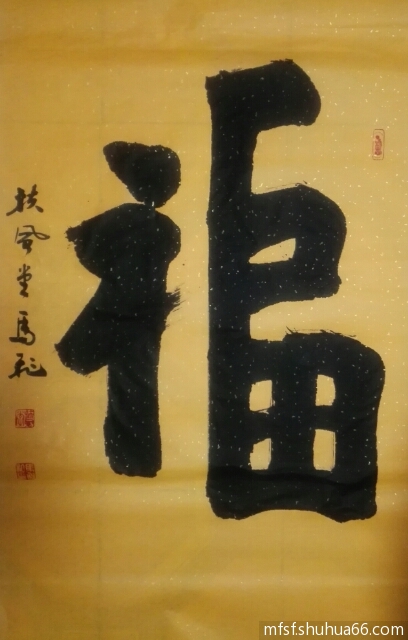 福
扶风堂马
mfsf.shuhua66.com